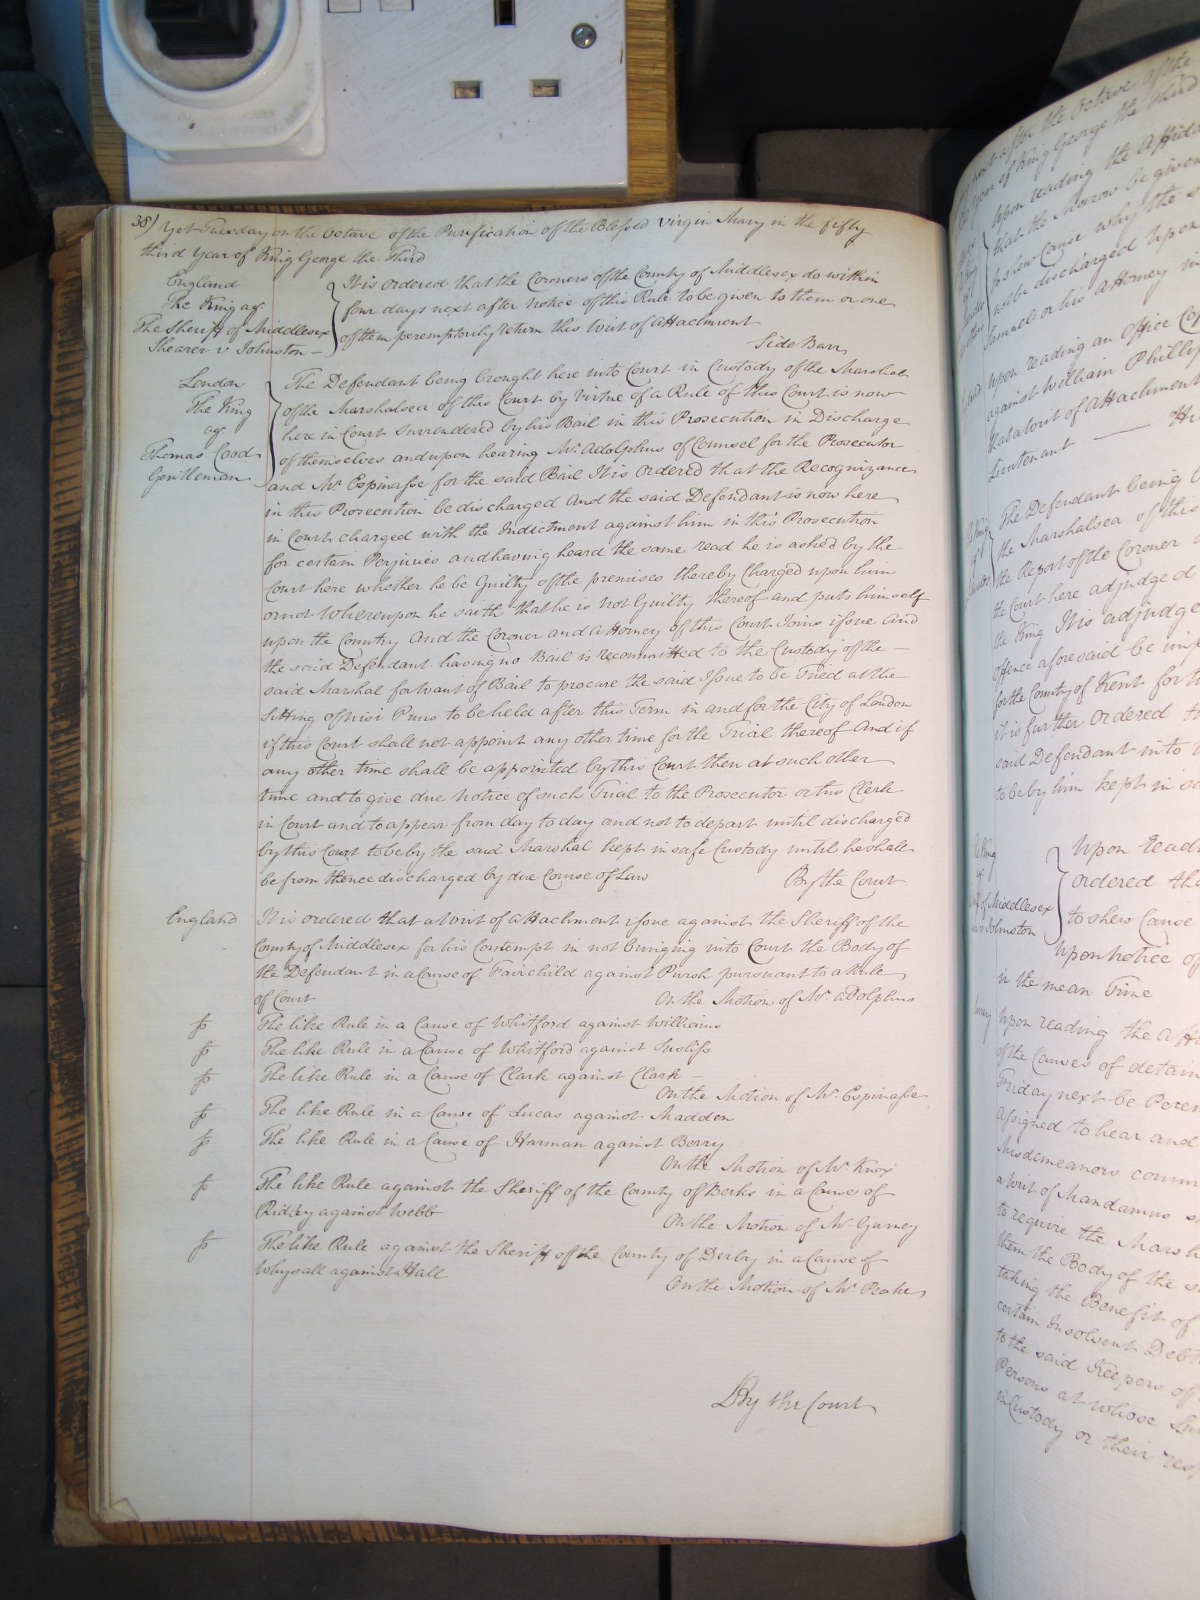 38) Yet Tuesday on the Octave of the Purification of the Blessed Virgin Mary in the fifty
third Year of King George the Third
England
The King agt
The Sheriff of Middlesex
Shearer v Johnston
It is ordered that the Coroners of the County of Middlesex do within
four days next after notice of this Rule to be given to them or one
of them peremptorily return this Writ of Attachment
Side Barr
London
The King
agt
Thomas Cood
Gentleman
The Defendant being brought here into Court in Custody of the Marshal
of the Marshalsea of this Court by virtue of a Rule of this Court is now
here in Court surrendered by his Bail in this Prosecution in Discharge
of themselves and upon hearing Mr. Adolphus of Counsel for the Prosecutor
and Mr. Espinasse for the said Bail It is ordered that the Recognizance
in this Prosecution be discharged And the said Defendant is now here
in Court charged with the Indictment against him in this Prosecution
for certain Perjuries and having heard the same read he is asked by the
Court here whether he be Guilty of the premises thereby Charged upon him
or not Whereupon he saith that he is not Guilty thereof and puts himself
upon the Country And the Coroner and Attorney of this Court Joins issue And
the said Defendant having no Bail is recommitted to the Custody of the
said Marshal for want of Bail to procure the said Issue to be Tried at the
Sitting of Nisi Prius to be held after this Term in and for the City of London
if this Court shall not appoint any other time for the Trial thereof And if
any other time shall be appointed by this Court then at such other
time and to give due Notice of such Trial to the Prosecutor or his Clerk
in Court and to appear from day to day and not to depart until discharged
by this Court to be by the said Marshal kept in safe Custody until he shall
be from thence discharged by due Course of Law
By the Court
England
It is ordered that a Writ of Attachment issue against the Sheriff of the
County of Middlesex for his Contempt in not bringing into Court the Body of
the Defendant in a Cause of Fairchild against Pursh pursuant to a Rule
of Court
On the Motion of Mr. Adolphus
The like Rule in a Cause of Whitford against Williams
The like Rule in a Cause of Whitford against
The like Rule in a Cause of Clark against Clark
On the Motion of Mr. Espinasse
The like Rule in a Cause of Lucas against Madden
The like Rule in a Cause of Harman against Berry
On the Motion of Mr Knox
The like Rule against the Sheriff of the County of Berks in a Cause of
Ridley against Webb
On the Motion of Mr Gurney
The like Rule against the Sheriff of the County of Derby in a Cause of
Whysall against Hall
On the Motion of Mr Peake
By the Court
the Octave of the
Year of King George the Third
Upon reading the Affid
that the Morrow be given
to shew Cause why the
not be discharged upon
Samuel or his Attorney in
Upon reading an Office Cop
against William Philly
that a Writ of Attachment
Lieutenant
The Defendant being b
the Marshalsea of this
the Report of the Coroner a
the Court here adjudged
the King It is adjudge
Offence aforesaid be imp
for the County of Kent for t
it is further ordered t
said Defendant into
to be by him kept in sa
the King
of Middlesex
Johnston
Upon read
ordered tha
to shew Cause
upon notice of
in the mean Time
Upon reading the Aff
of the Causes of detain
Friday next be Perem
assigned to hear and
Misdemeanors comm
a Writ of Mandamus
to require the Marsh
them the Body of the
taking the Benefit of
certain Insolvent Debt
to the said Keepers of
Persons at whose Sui
in Custody or their res